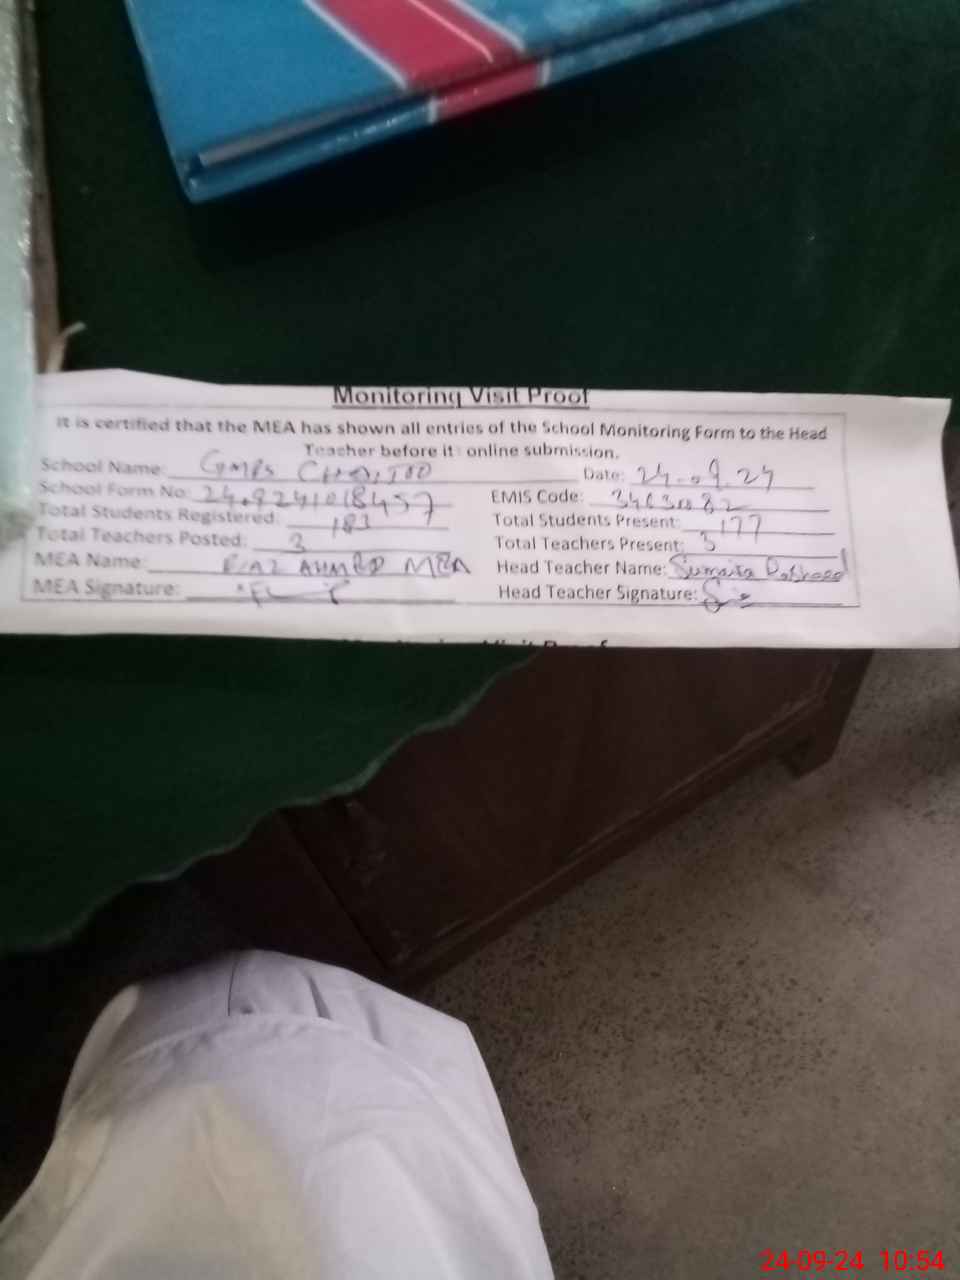 Monitoring Visit Proof
It is certified that the MEA has shown all entries of the School Monitoring Form to the Head
Teacher before it online submission.
School Name: GMPS Date: 24.09.24
School Form No: EMIS Code:
Total Students Registered: 183 Total Students Present: 177
Total Teachers Posted: 3 Total Teachers Present: 3
MEA Name: AHMED MEA Head Teacher Name: Sumaira Rasheed
MEA Signature: Head Teacher Signature:
24-09-24 10:54